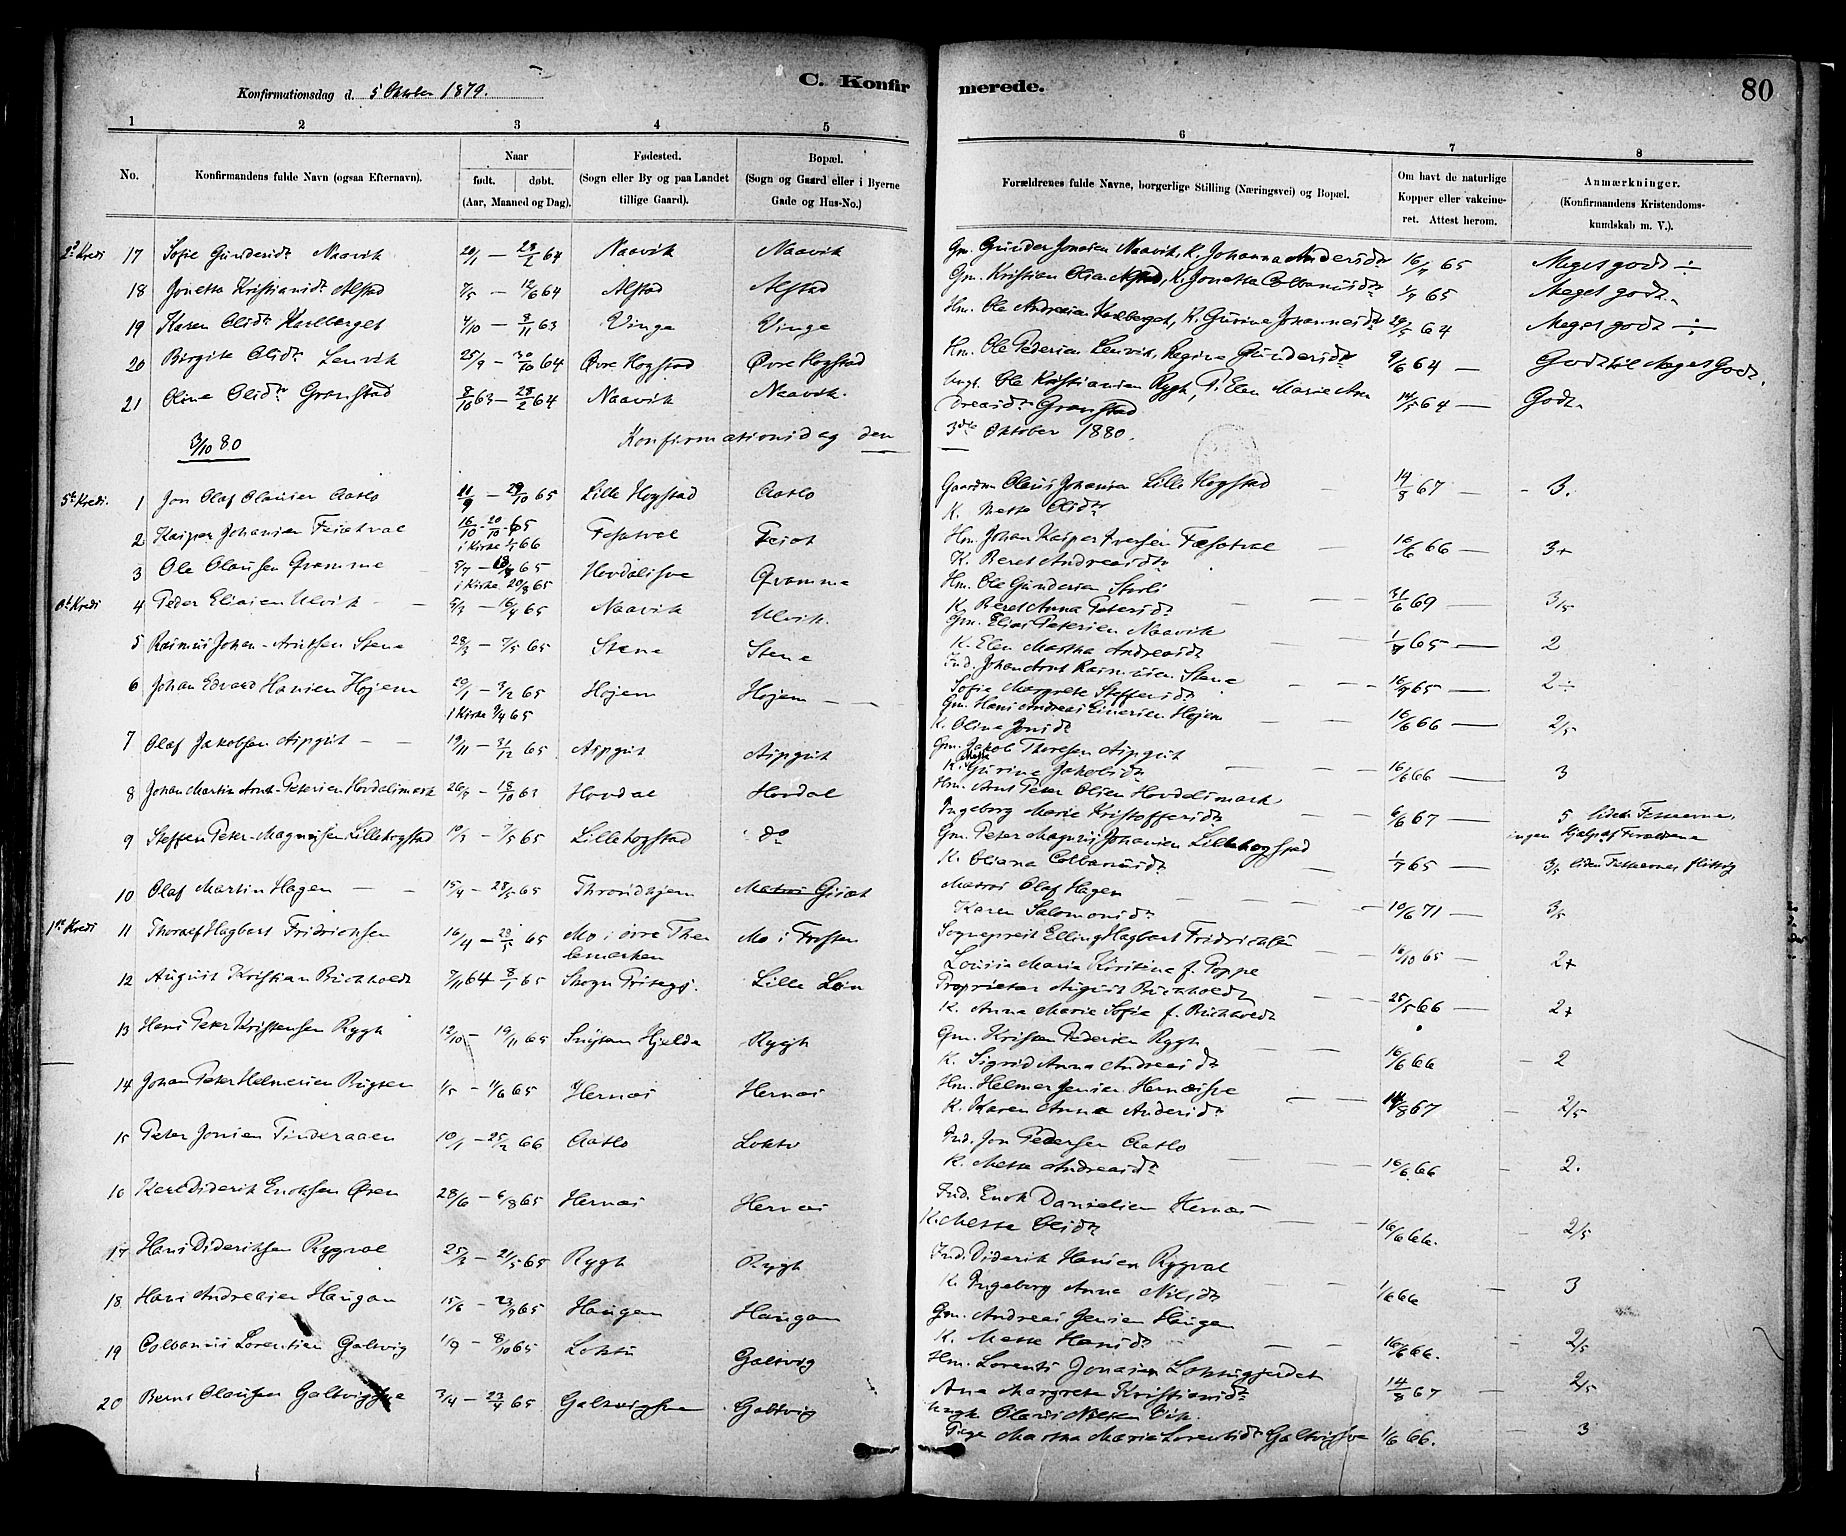 C. Konfirmerede.
80
Konfirmationsdag d. 5 Oktober 1879.
1 2 3 4 5 6 7 8
No.
Konfirmandens fulde Navn (ogsaa Efternavn).
Naar
født. døbt.
(Aar, Maaned og Dag).
Fødested.
(Sogn eller By og paa Landet
tillige Gaard).
Bopæl.
(Sogn og Gaard eller i Byerne
Gade og Hus-No.)
Forældrenes fulde Navne, borgerlige Stilling (Næringsvei) og Bopæl.
Om havt de naturlige
Kopper eller vakcine-
ret. Attest herom.
Anmærkninger.
(Konfirmandens Kristendoms-
kundskab m. V.).
17 Sofie Gundersdtr Naavik 20/1 — 28/2 64 Naavik Naavik Gm. Gunder Jonasen Naavik, K. Johanna Andersdtr 16/7 65 Meget godt ÷
18 Jonetta Kristiansdtr Alstad 7/5 — 12/6 64 Alstad Alstad Gm. Kristian Olsen Alstad, K. Jonetta Colbanusdtr 1/7 65 Meget godt.
19 Karen Olsdtr Karlberget 4/10 — 8/11 63 Vinge Vinge Hm. Ole Andreasen Karlberget, K. Gurine Johannesdtr 64 Meget godt ÷
20 Birgite Olsdtr Lenvik 25/9 — 30/10 64 Øvre Hogstad Øvre Hogstad Hm. Ole Pedersen Lenvik, Regine Gundersdtr 9/6 64 — Godt til Meget Godt.
21 Oline Olsdtr Granstad 8/10 63 — 28/2 64 Naavik Naavik. Ungk. Ole Kristiansen Rygh, P. Elen Marie An
dreasdtr Granstad 14/5 64 — Godt.
3/10 80 Konfirmationsdag den 3die Oktober 1880.
1 Jon Olaf Olausen Aatlo 11/9 — 29/10 65 Lille Hogstad Aatlo Gaardm Olaus Johansen Lille Hogstad 14/8 67 — 3.
K. Mette Olsdtr
2 Kasper Johansen 16/10 - 20/10 65
i Kirke 1/1 66 Hm. Johan Kasper Iversen 16/6 66 — 3+
K. Beret Andreasdtr
3 Ole Olausen Qvamme 65
i Kirke 20/8 65 Hovdalsve Qvamme Hm. Ole Gundersen
K. Beret Anna Petersdtr 69 — 3/5
4 Peder Eliasen Ulvik 5/3 — 16/4 65 Naavik Ulvik. Gm. Elias Petersen Naavik
K. Elen Martha Andreasdtr 65 — 2
5 Rasmus Johan Arntsen Stene 28/3 — 7/5 65 Stene Stene Ind. Johan Arnt Rasmussen Stene
Sofie Margrete Steffensdtr 65 — 2÷
6 Johan Edvard Hansen Højem 20/1 — 3/2 65
i Kirke 9/4 65 Højem Højem Gm. Hans Andreas Einersen Højem
K. Oline Jonsdtr 16/6 66 — 2/5
7 Olaf Jakobsen Aspgut 19/11 — 31/12 65 Aspgut Aspgut Gm. Jakob Thoresen Aspgut
K. Gurine Jakobsdtr 16/6 66 — 3
8 Johan Martin Arnt-Petersen Hovdalsmark 18/10 63 Hovdal Hovdal Hm. Arnt Peter Olsen Hovdalsmark
Ingeborg Marie Kristoffersdtr 6/6 67 — 5
ingen Hjælp af Foraldrene
9 Steffen Peter-Magnussen Lillehogstad 7/5 65 Lillehogstad do Gm. Peter Magnus Johansen Lillehogstad
K. Eliana Colbanusdtr 1/7 65 — 3/5
10 Olaf Martin Hagen 15/4 — 28/5 65 Throndhjem Matros Olaf Hagen
Karen Salomonsdtr 10/6 71 — 3/5
11 Thoralf Hagbart Fridrichsen 16/4 65 Mo i øvre The
lemarken Mo i Frosten Sogneprest Elling Hagbart Fridrichsen
Lovise Marie Kirstine f. Poppe 16/10 65 — 2+
12 August Kristian Buchholdt 7/11 64 — 8/1 65 Lille Lein Proprietær August Buchholdt
K. Anna Marie Sofie f. 25/5 66 — 2+
13 Hans Peter Kristensen Rygh 12/10 — 19/11 65 Rygh Gm. Kristen Pedersen Rygh
K. Sigrid Anna Andreasdtr 16/6 66 — 2
14 Johan Peter Helmersen 1/5 — 11/6 65 Hernæs Hernæs Hm. Helmer Jensen Hernæsve
K. Karen Anna Andersdtr 14/8 67 — 2/5
15 Peter Jonsen Tinderaaen 10/1 — 25/2 66 Aatlo Loktu Ind. Jon Pedersen Aatlo
K. Mette Andreasdtr 16/6 66 — 2.
16 Karl Diderik Enoksen Øren 28/6 — 6/8 65 Hernæs Hernæs Ind. Enok Danielsen Hernæs
K. Mette Olsdtr 16/6 66. — 2/5
17 Hans Dideriksen Rygval 25/3 — 21/5 65 Rygh Rygh Ind. Diderik Hansen Rygval
K. Ingeborg Anna Nilsdtr 1/6 66 — 3
18 Hans Andreasen Haugan 15/6 65 Haugan Haugan Gm. Andreas Jensen Haugan
K. Mette Hansdtr 16/6 66. — 2/5
19 Colbanus Lorentsen Galtvig 1/9 — 8/10 65 Loktu Galtvig Hm. Lorents Jonasen Loktugjerdet
Ane Margrete Kristiansdtr 14/8 67 — 2/5
20 Bernt Olausen Galtvigsve 3/4 — 23/4 65 Galtvigsve Galtvig Ungk. Olaus Nilsen
Pige Martha Marie Lorentsdtr Galtvigsve 1/6 66. — 3